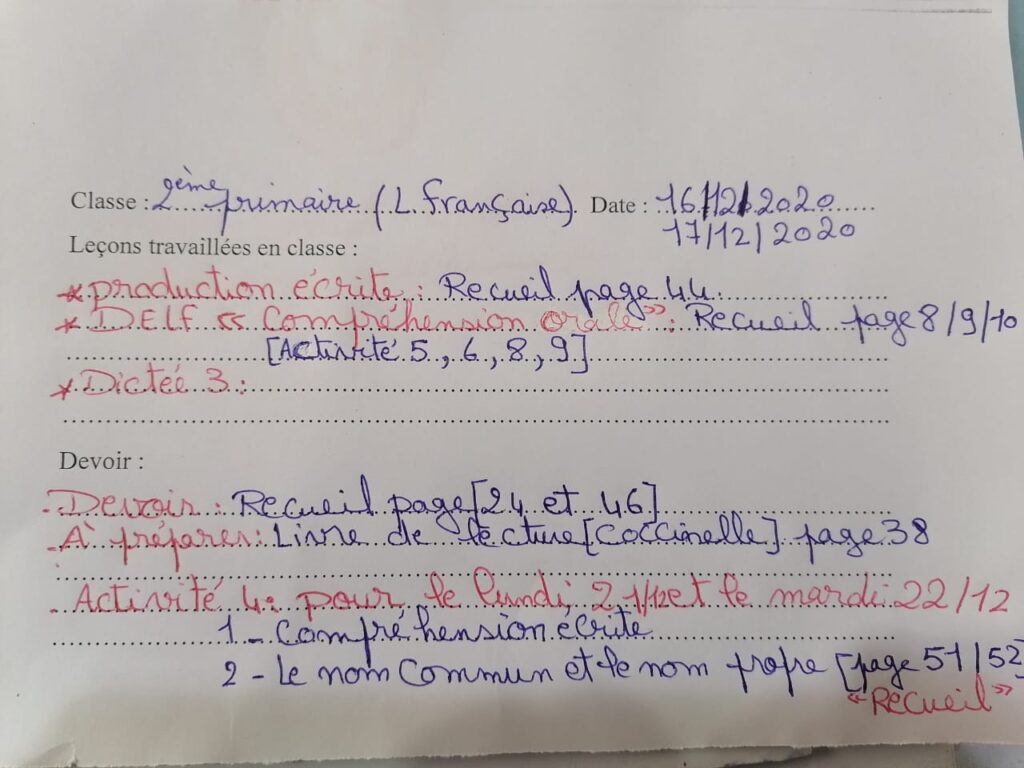 Classe : 2ème primaire (L. Française). Date : 16/12/2020
17/12/2020
Leçons travaillées en classe :
* production écrite : Recueil page 44.
* DELF « Compréhension orale » : Recueil page 8/9/10
[Activité 5, 6, 8, 9]
* Dictée 3 :
Devoir :
- Devoir : Recueil page [24 et 46]
- À préparer : Livre de lecture [Coccinelle] page 38
- Activité 4 : pour le lundi 21/12 et le mardi 22/12
1 - Compréhension écrite
2 - Le nom commun et le nom propre [page 51/52]
« Recueil »